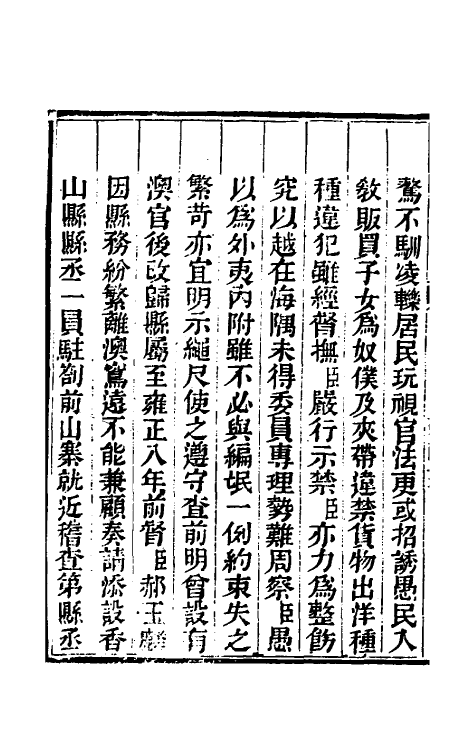 驁不馴凌轢居民玩視官法更或招誘愚民入
敎販買子女爲奴僕及夾帶違禁貨物出洋種
種違犯雖經督撫臣嚴行示禁臣亦力爲整飭
究以越在海隅未得委員專理勢難周察臣愚
以爲外夷內附雖不必與編氓一例約束失之
繁苛亦宜明示繩尺使之遵守查前明曾設有
澳官後改歸縣屬至雍正八年前督臣郝玉麟
因縣務紛繁離澳寫遠不能兼顧奏請添設香
山縣縣丞一員駐劄前山寨就近稽查第縣丞